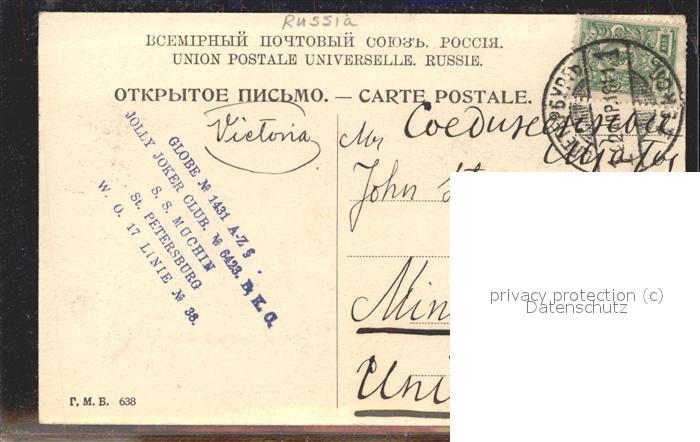 Russia
ВСЕМІРНЫЙ ПОЧТОВЫЙ СОЮЗЪ. РОССІЯ.
UNION POSTALE UNIVERSELLE. RUSSIE.
ОТКРЫТОЕ ПИСЬМО. — CARTE POSTALE.
Victoria
GLOBE № 1431 A-Z
JOLLY JOKER CLUB. № 6423.
S. S. MUCHIN
St. PETERSBURG
W. O. 17 LINIE № 38.
Соединенные
Mr
John
Min
Uni
privacy protection (c)
Datenschutz
Г. М. Б. 638